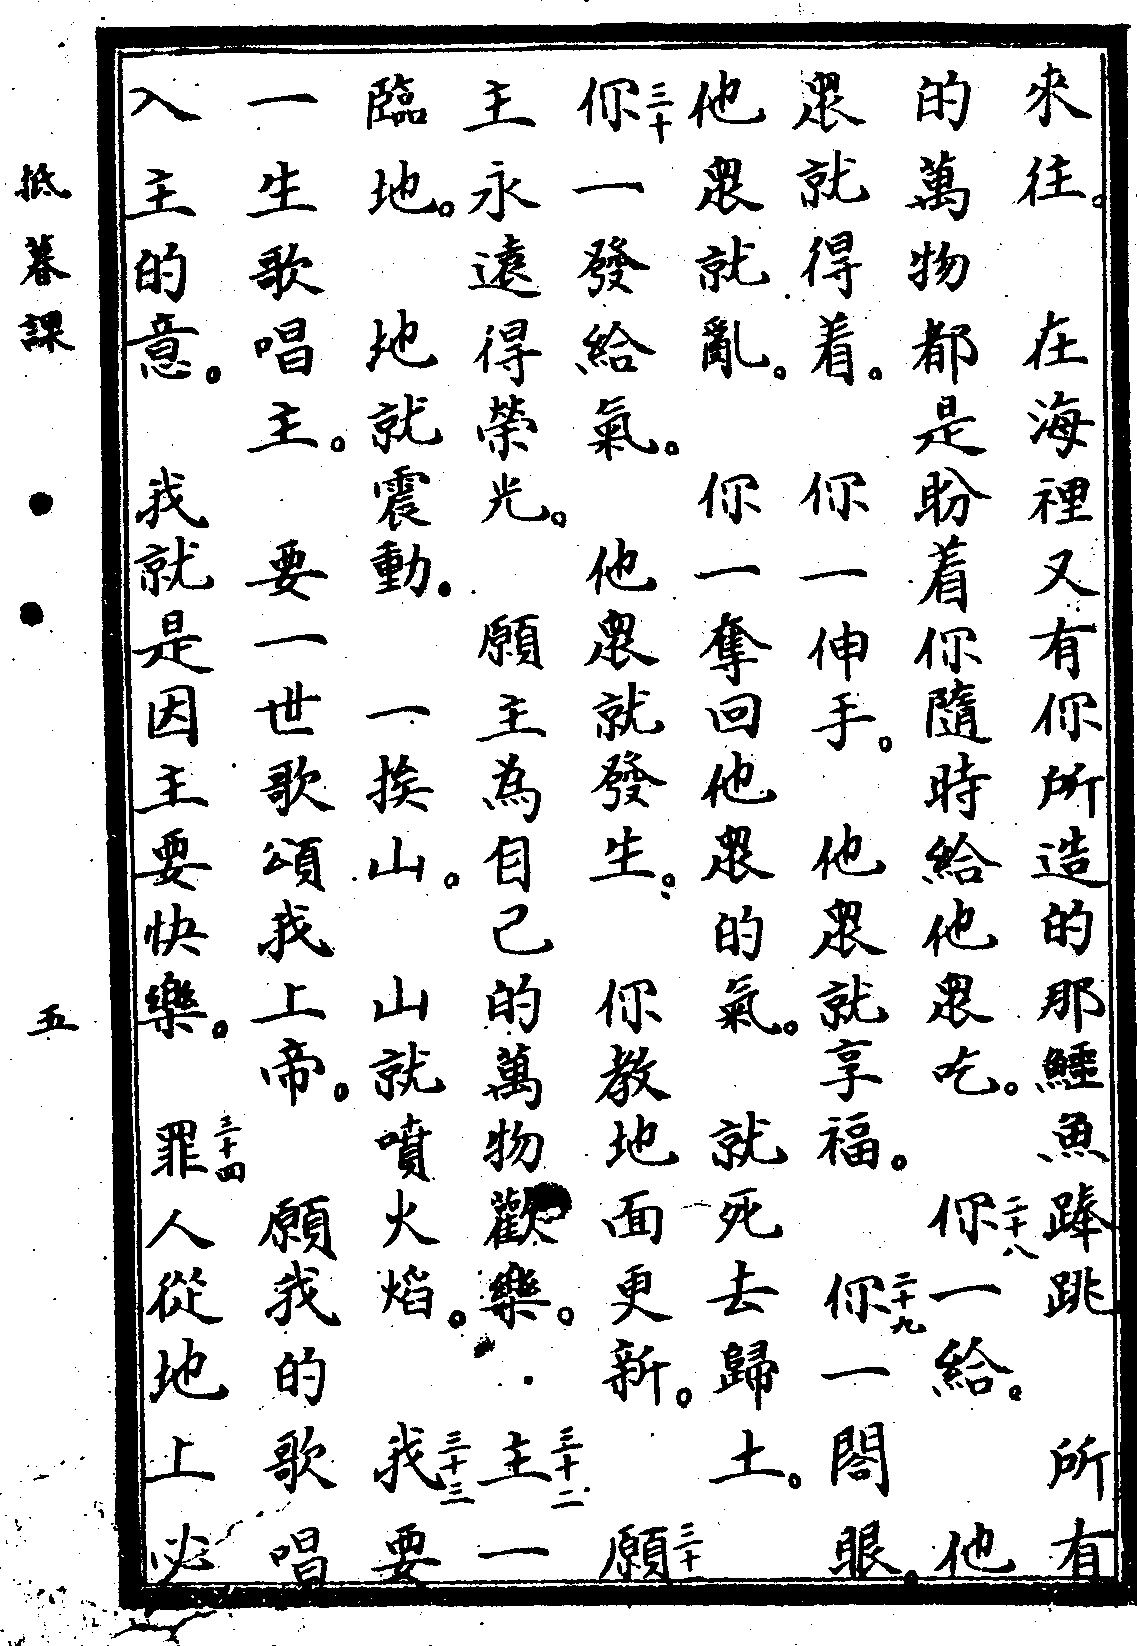 來往。 在海裡又有你所造的那鱷魚跳 所有
的萬物都是盼着你隨時給他眾吃。 二十八你一給。 他
眾就得着。 你一伸手。 他眾就享福。 二十九你一閤眼。
他眾就亂。 你一奪回他眾的氣。 就死去歸土。
三十你一發給氣。 他眾就發生。 你教地面更新。 三十願
主永遠得榮光。 願主為自己的萬物歡樂。 三十二主一
臨地。 地就震動。 一挨山。 山就噴火焰。 三十三我要
一生歌唱主。 要一世歌頌我上帝。 願我的歌唱
入主的意。 我就是因主要快樂。 三十四罪人從地上必
抵暮課 五